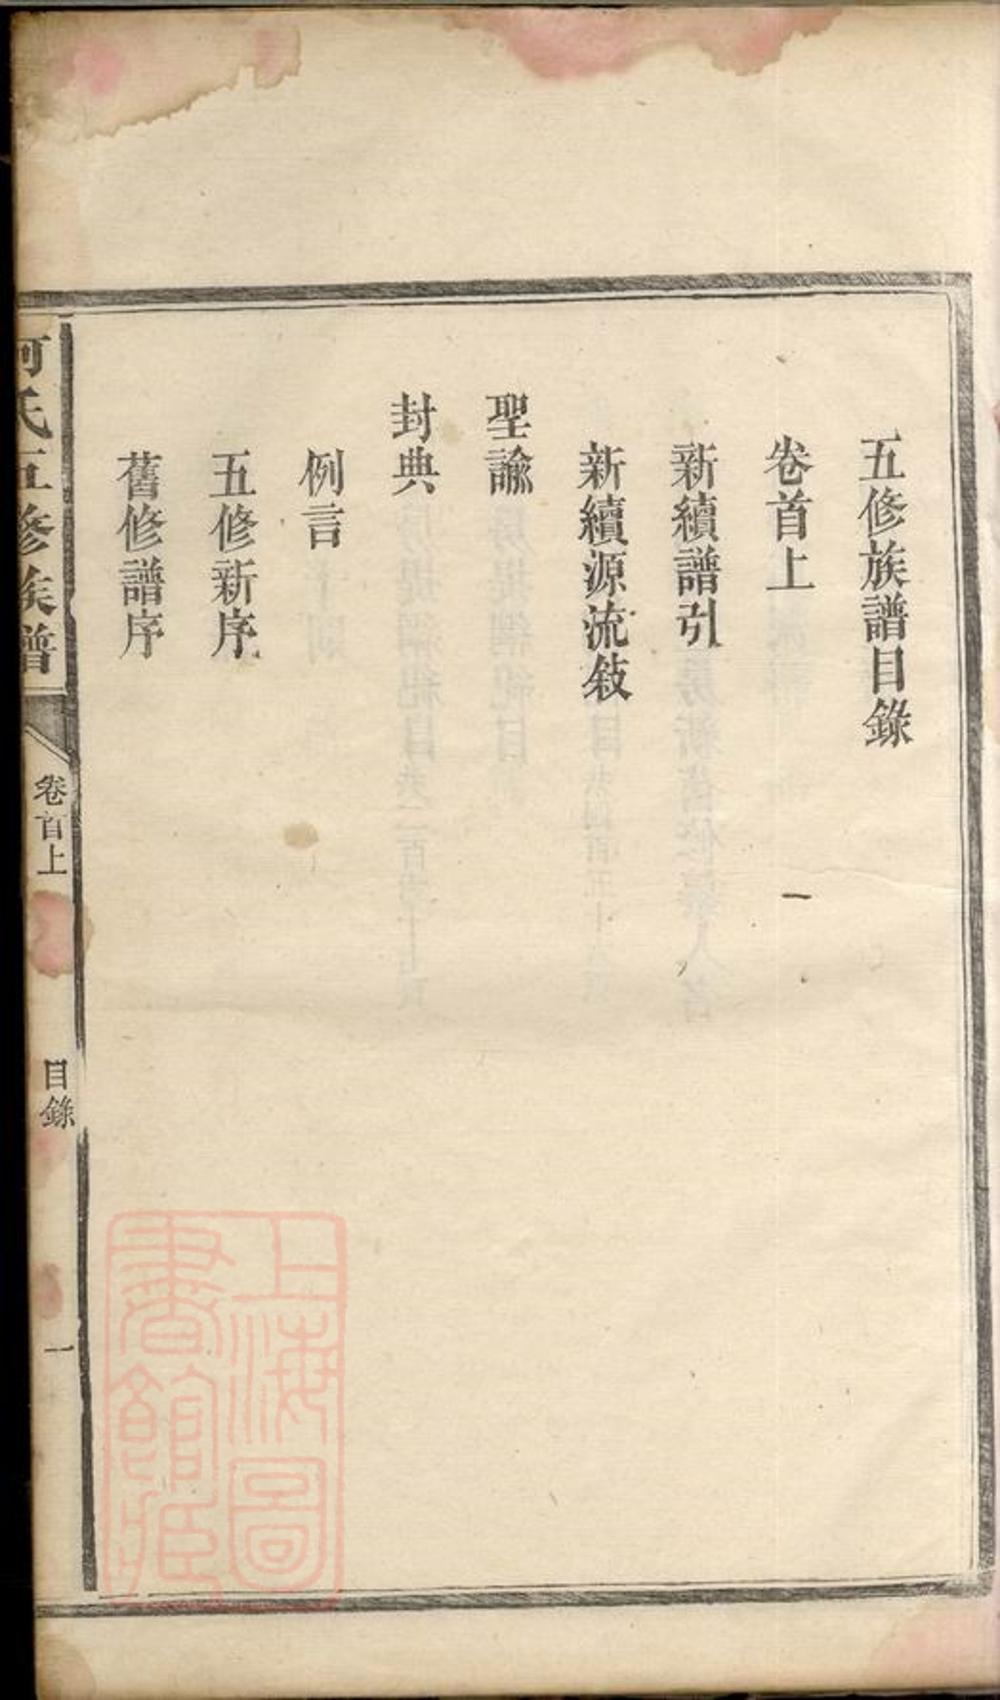 五修族譜目錄
卷首上
新續譜引
新續源流敍
聖諭
封典
例言
五修新序
舊修譜序
何氏五修族譜
卷首上
目錄
一
上海圖
書館藏